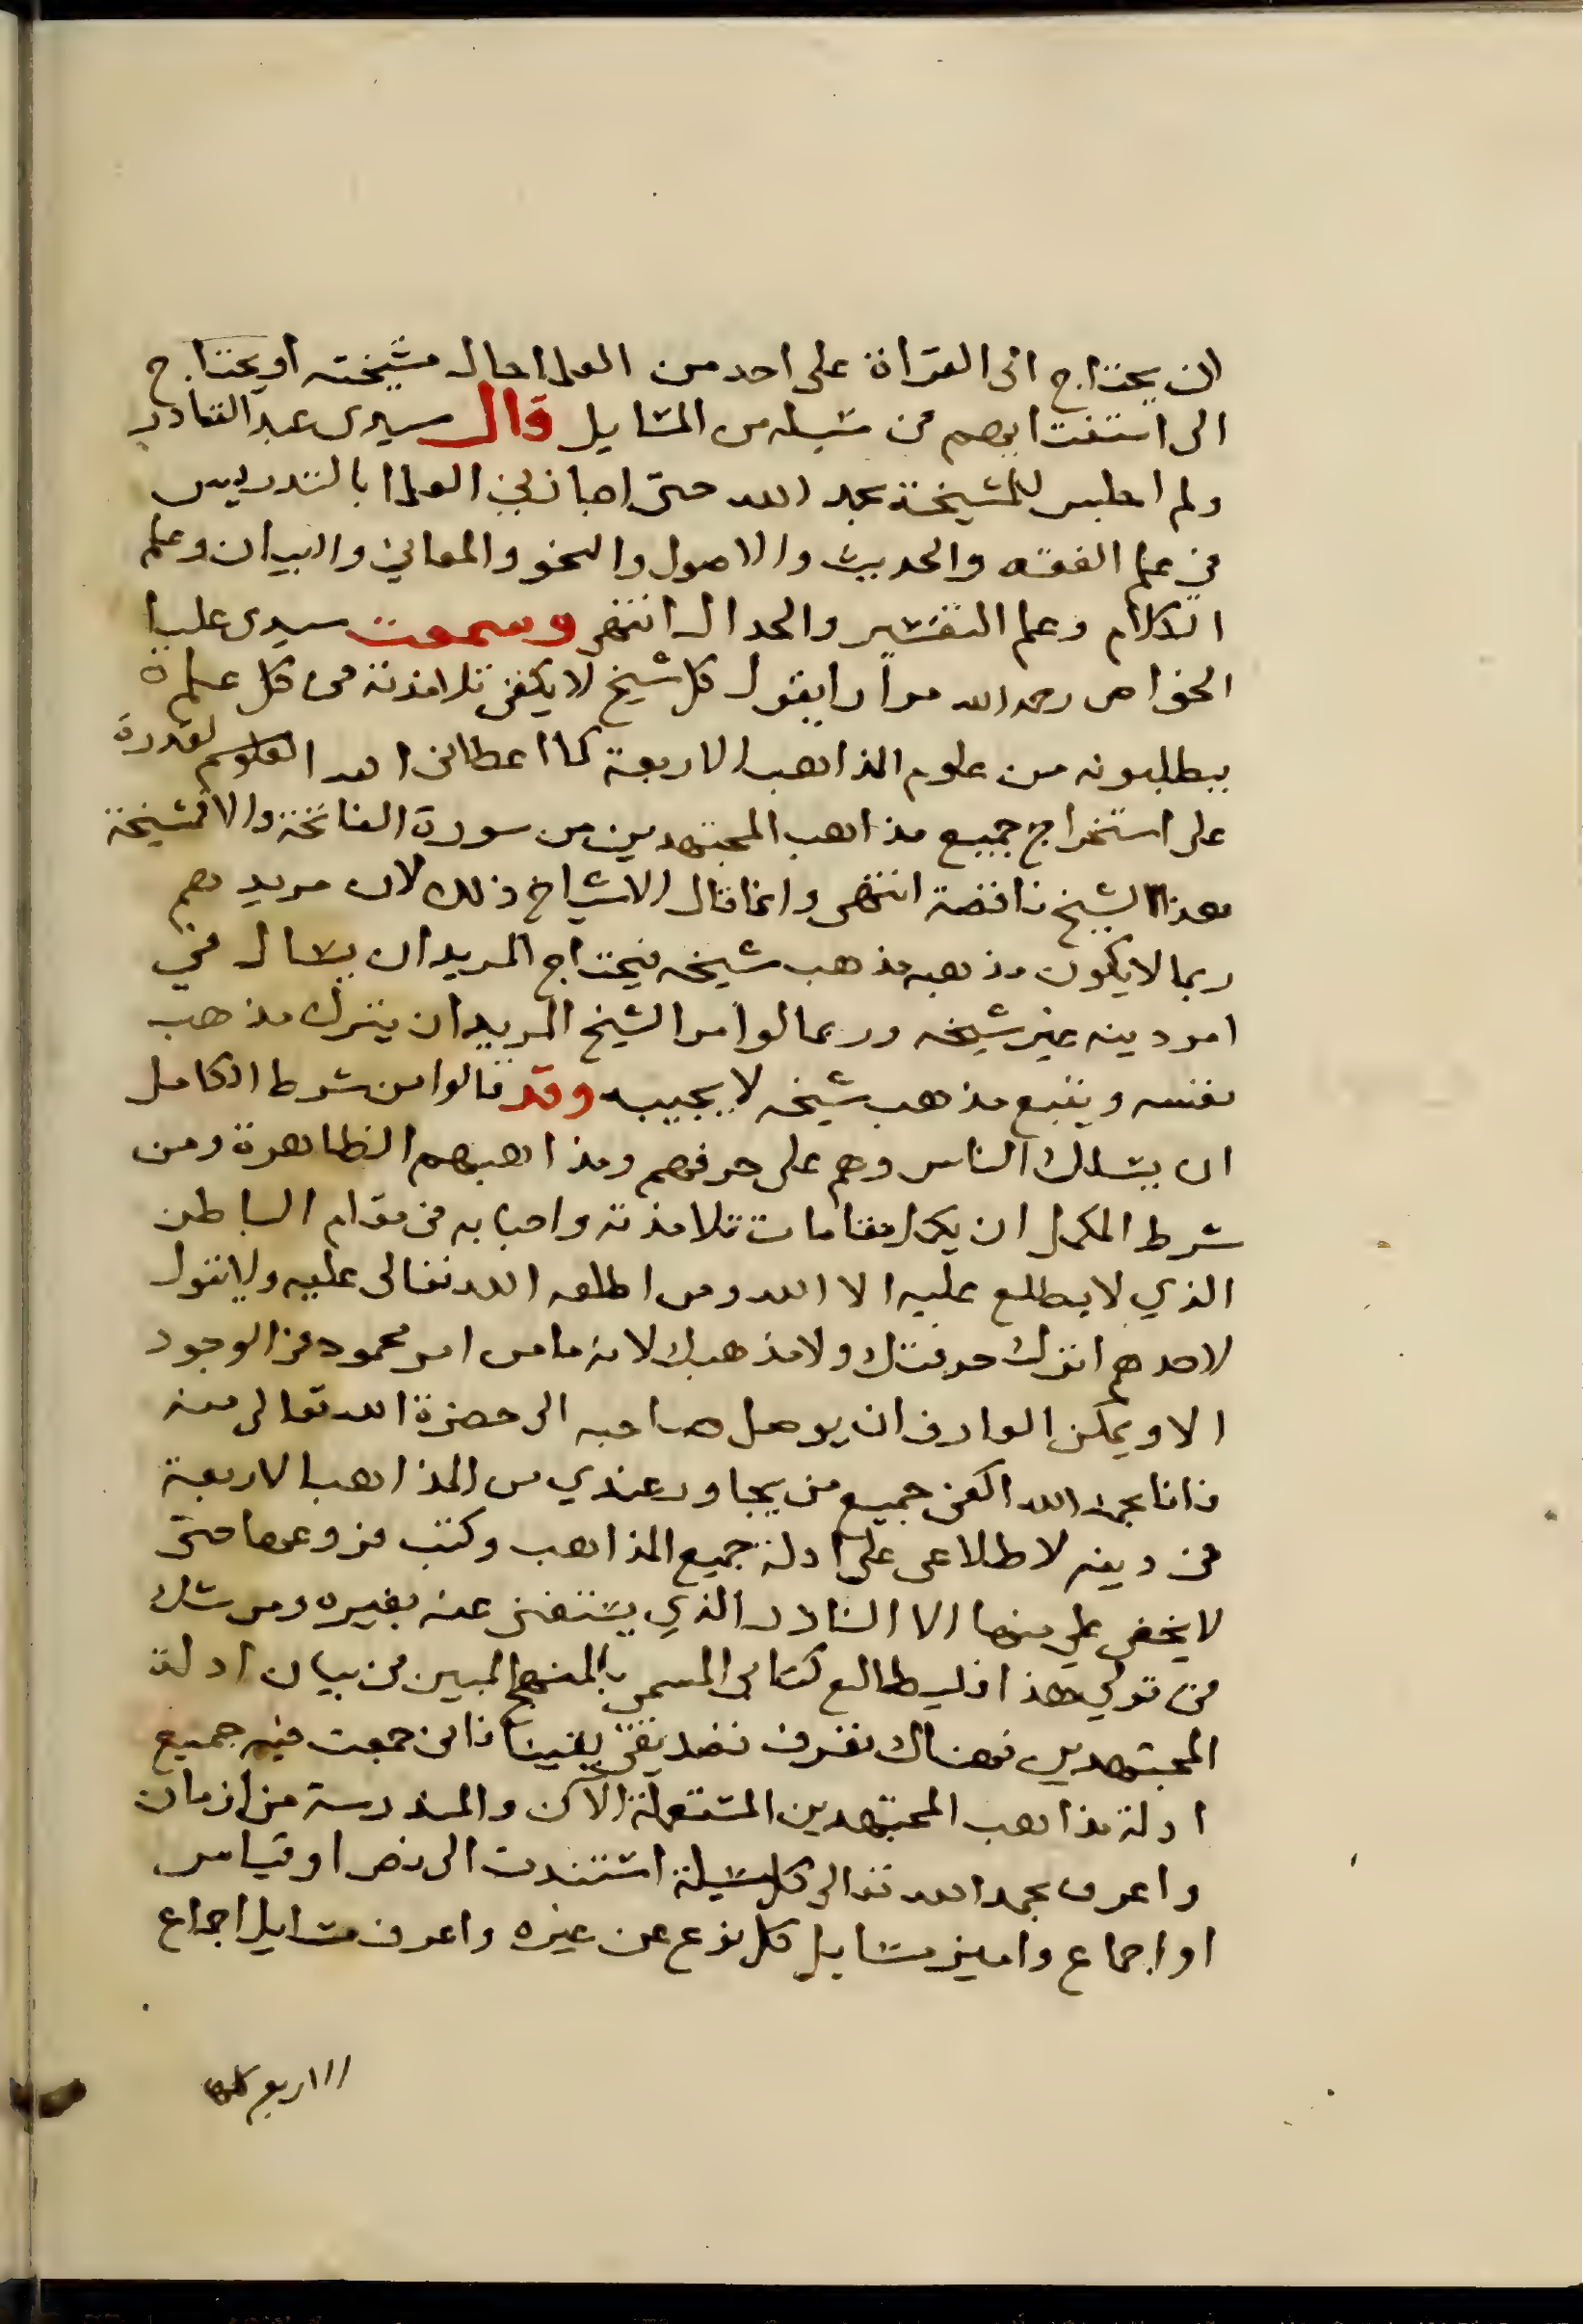 ان يحتاج الى القراة على احد من العلما حال مشيخته او يحتاج
الى استفتايهم في مسيلة من المسايل قال سيدى عبد القادر
ولم اجلس للمشيخة بحمد الله حتى اجازني العلما بالتدريس
في علم الفقه والحديث والاصول والنحو والمعاني والبيان وعلم
الكلام وعلم التفسير والجدال انتهى وسمعت سيدى عليا
الخواص رحمه الله مرارا يقول كل شيخ لا يكفى تلامذته فى كل علم
يطلبونه من علوم المذاهب الاربعة كما اعطانى الله القدرة
على استخراج جميع مذاهب المجتهدين من سورة الفاتحة والا فمشيخة
هذا الشيخ ناقصة انتهى وانما قال الاشياخ ذلك لان مريدهم
ربما لا يكون مذهبه مذهب شيخه فيحتاج المريد ان يسال في
امر دينه غير شيخه وربما لو امر الشيخ المريد ان يترك مذهب
نفسه ويتبع مذهب شيخه لا يجيبه وقد قالوا من شرط الكامل
ان يسلك الناس وهم على حرفهم ومذاهبهم الظاهرة ومن
شرط المكمل ان يكمل مقامات تلامذته واصحابه في مقام الباطن
الذي لا يطلع عليه الا الله ومن اطلعه الله تعالى عليه ولا يقول
لاحدهم اترك حرفتك ولا مذهبك لانه ما من امر محمود فى الوجود
الا ويمكن العارف ان يوصل صاحبه الى حضرة الله تعالى منه
فانا بحمد الله اكفى جميع من يجاور عندي من المذاهب الاربعة
فى دينه لاطلاعى على ادلة جميع المذاهب وكتب فروعها حتى
لا يخفى على منها الا النادر الذي يستغنى عنه بغيره ومن شك
فى قولي هذا فليطالع كتابى المسمى بالمنهج المبين فى بيان ادلة
المجتهدين فهناك يعرف تصديقى يقينا فانى جمعت فيه جميع
ادلة مذاهب المجتهدين المستعملة الآن والمندرسة من ازمان
واعرف بحمد الله تعالى كل مسيلة استندت الى نص او قياس
او اجماع واميز مسايل كل نوع عن غيره واعرف مسايل اجماع
الاربع